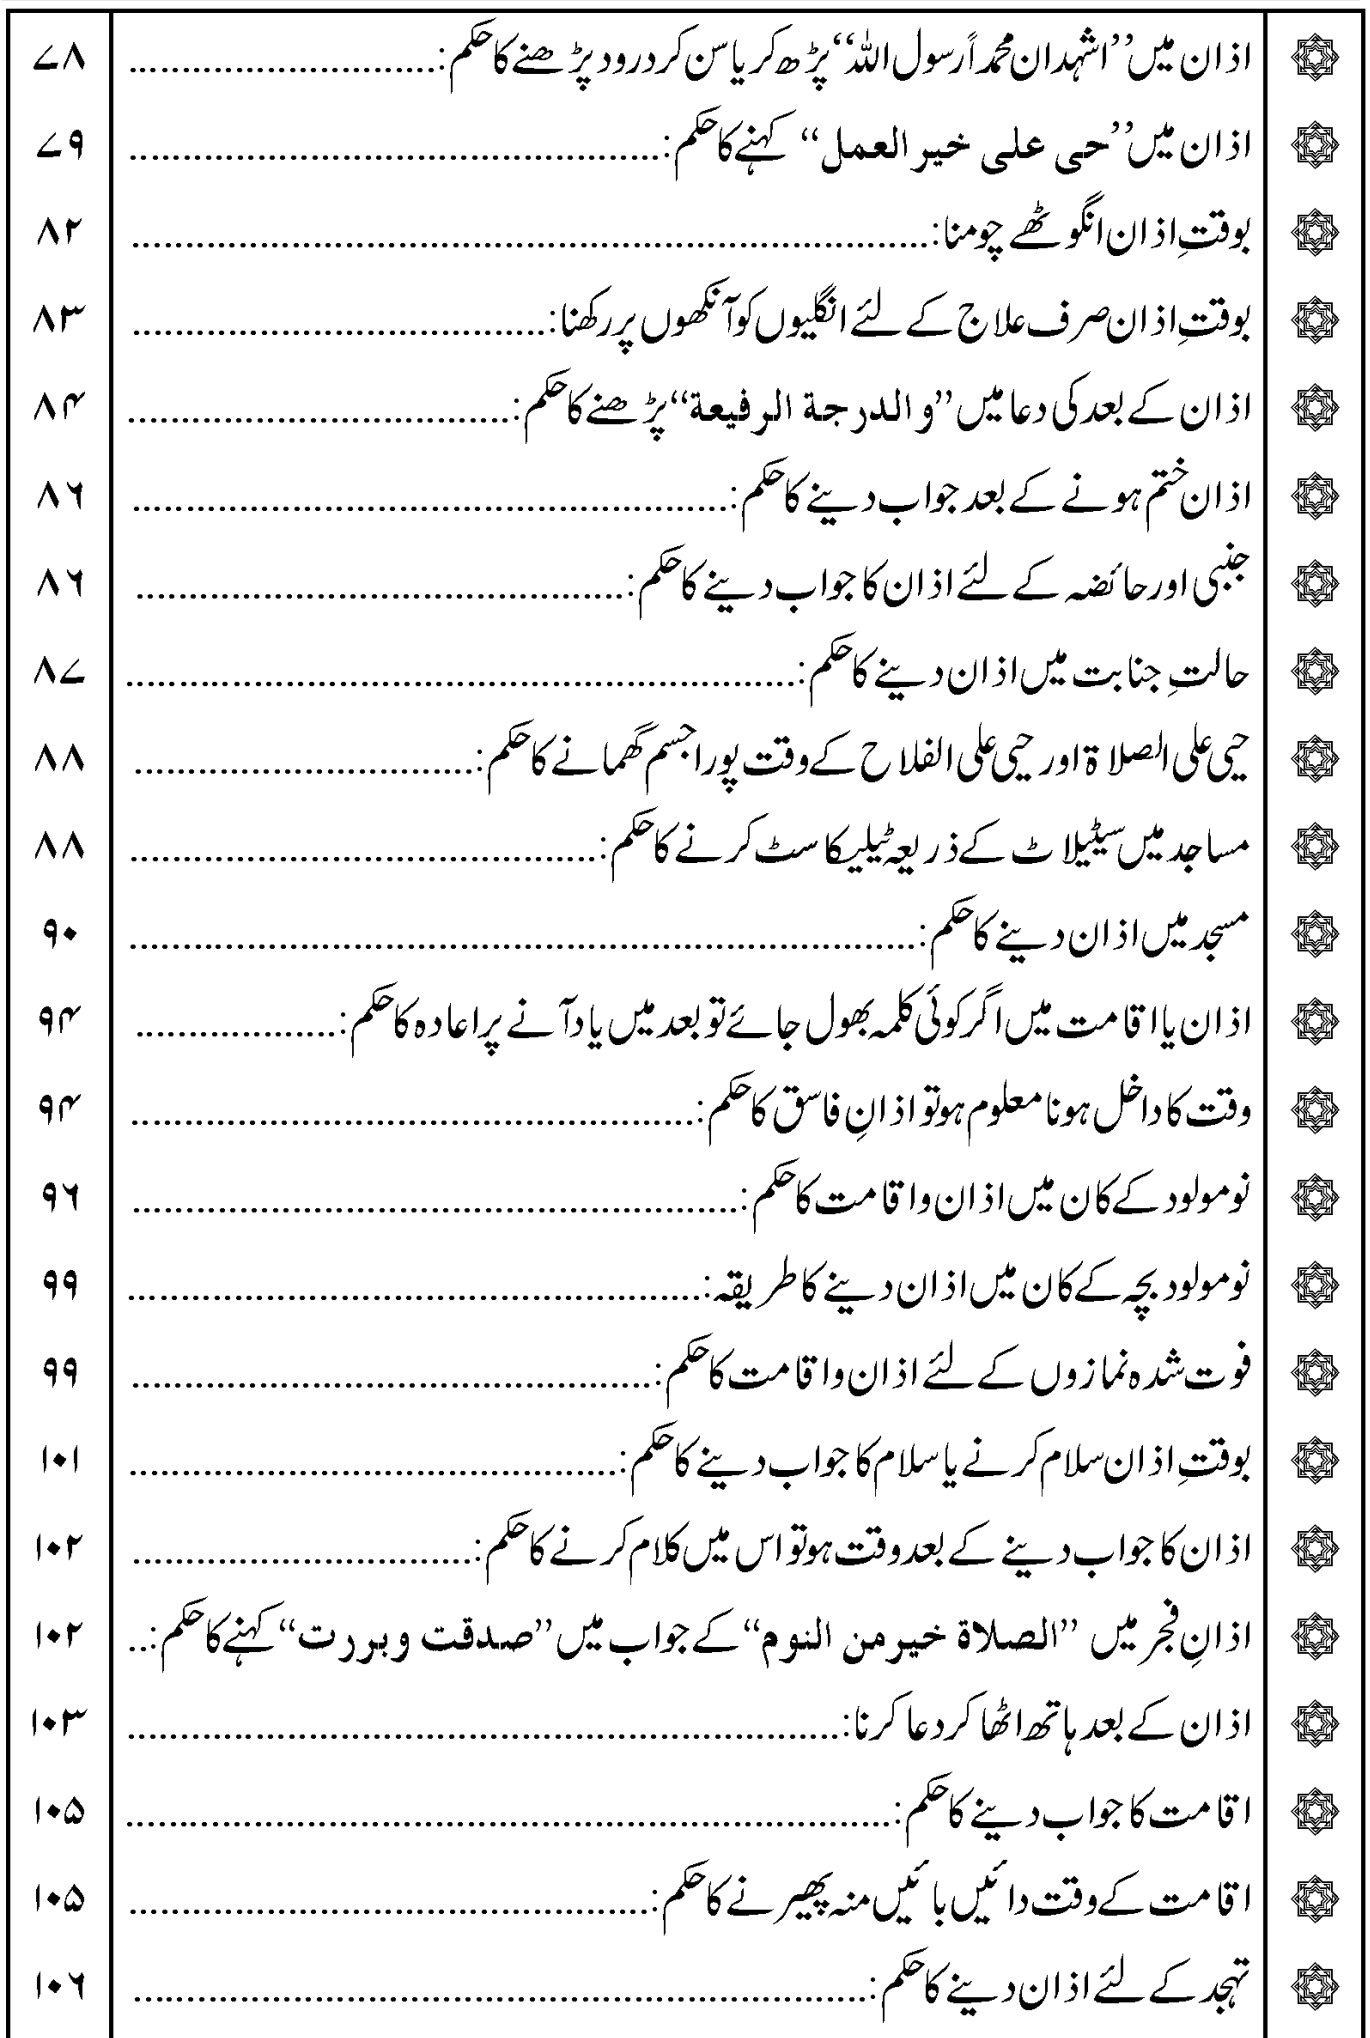 اذان میں ’’اشہدان محمداً رسول اللہ‘‘ پڑھ کر یا سن کر درود پڑھنے کا حکم:.............................. ۷۸
اذان میں ’’حی علی خیر العمل‘‘ کہنے کا حکم:.............................. ۷۹
بوقتِ اذان انگوٹھے چومنا:.............................. ۸۲
بوقتِ اذان صرف علاج کے لئے انگلیوں کو آنکھوں پر رکھنا:.............................. ۸۳
اذان کے بعد کی دعا میں ’’و الدرجة الرفیعة‘‘ پڑھنے کا حکم:.............................. ۸۴
اذان ختم ہونے کے بعد جواب دینے کا حکم:.............................. ۸۶
جنبی اور حائضہ کے لئے اذان کا جواب دینے کا حکم:.............................. ۸۶
حالتِ جنابت میں اذان دینے کا حکم:.............................. ۸۷
حیی علی الصلاۃ اور حیی علی الفلاح کے وقت پورا جسم گھمانے کا حکم:.............................. ۸۸
مساجد میں سیٹیلاٹ کے ذریعہ ٹیلیکاسٹ کرنے کا حکم:.............................. ۸۸
مسجد میں اذان دینے کا حکم:.............................. ۹۰
اذان یا اقامت میں اگر کوئی کلمہ بھول جائے تو بعد میں یاد آنے پر اعادہ کا حکم:.................... ۹۴
وقت کا داخل ہونا معلوم ہو تو اذانِ فاسق کا حکم:.............................. ۹۴
نومولود کے کان میں اذان واقامت کا حکم:.............................. ۹۶
نومولود بچہ کے کان میں اذان دینے کا طریقہ:.............................. ۹۹
فوت شدہ نمازوں کے لئے اذان واقامت کا حکم:.............................. ۹۹
بوقتِ اذان سلام کرنے یا سلام کا جواب دینے کا حکم:.............................. ۱۰۱
اذان کا جواب دینے کے بعد وقت ہو تو اس میں کلام کرنے کا حکم:.............................. ۱۰۲
اذانِ فجر میں ’’الصلاة خیر من النوم‘‘ کے جواب میں ’’صدقت وبررت‘‘ کہنے کا حکم:.. ۱۰۲
اذان کے بعد ہاتھ اٹھا کر دعا کرنا:.............................. ۱۰۳
اقامت کا جواب دینے کا حکم:.............................. ۱۰۵
اقامت کے وقت دائیں بائیں منہ پھیرنے کا حکم:.............................. ۱۰۵
تہجد کے لئے اذان دینے کا حکم:.............................. ۱۰۶